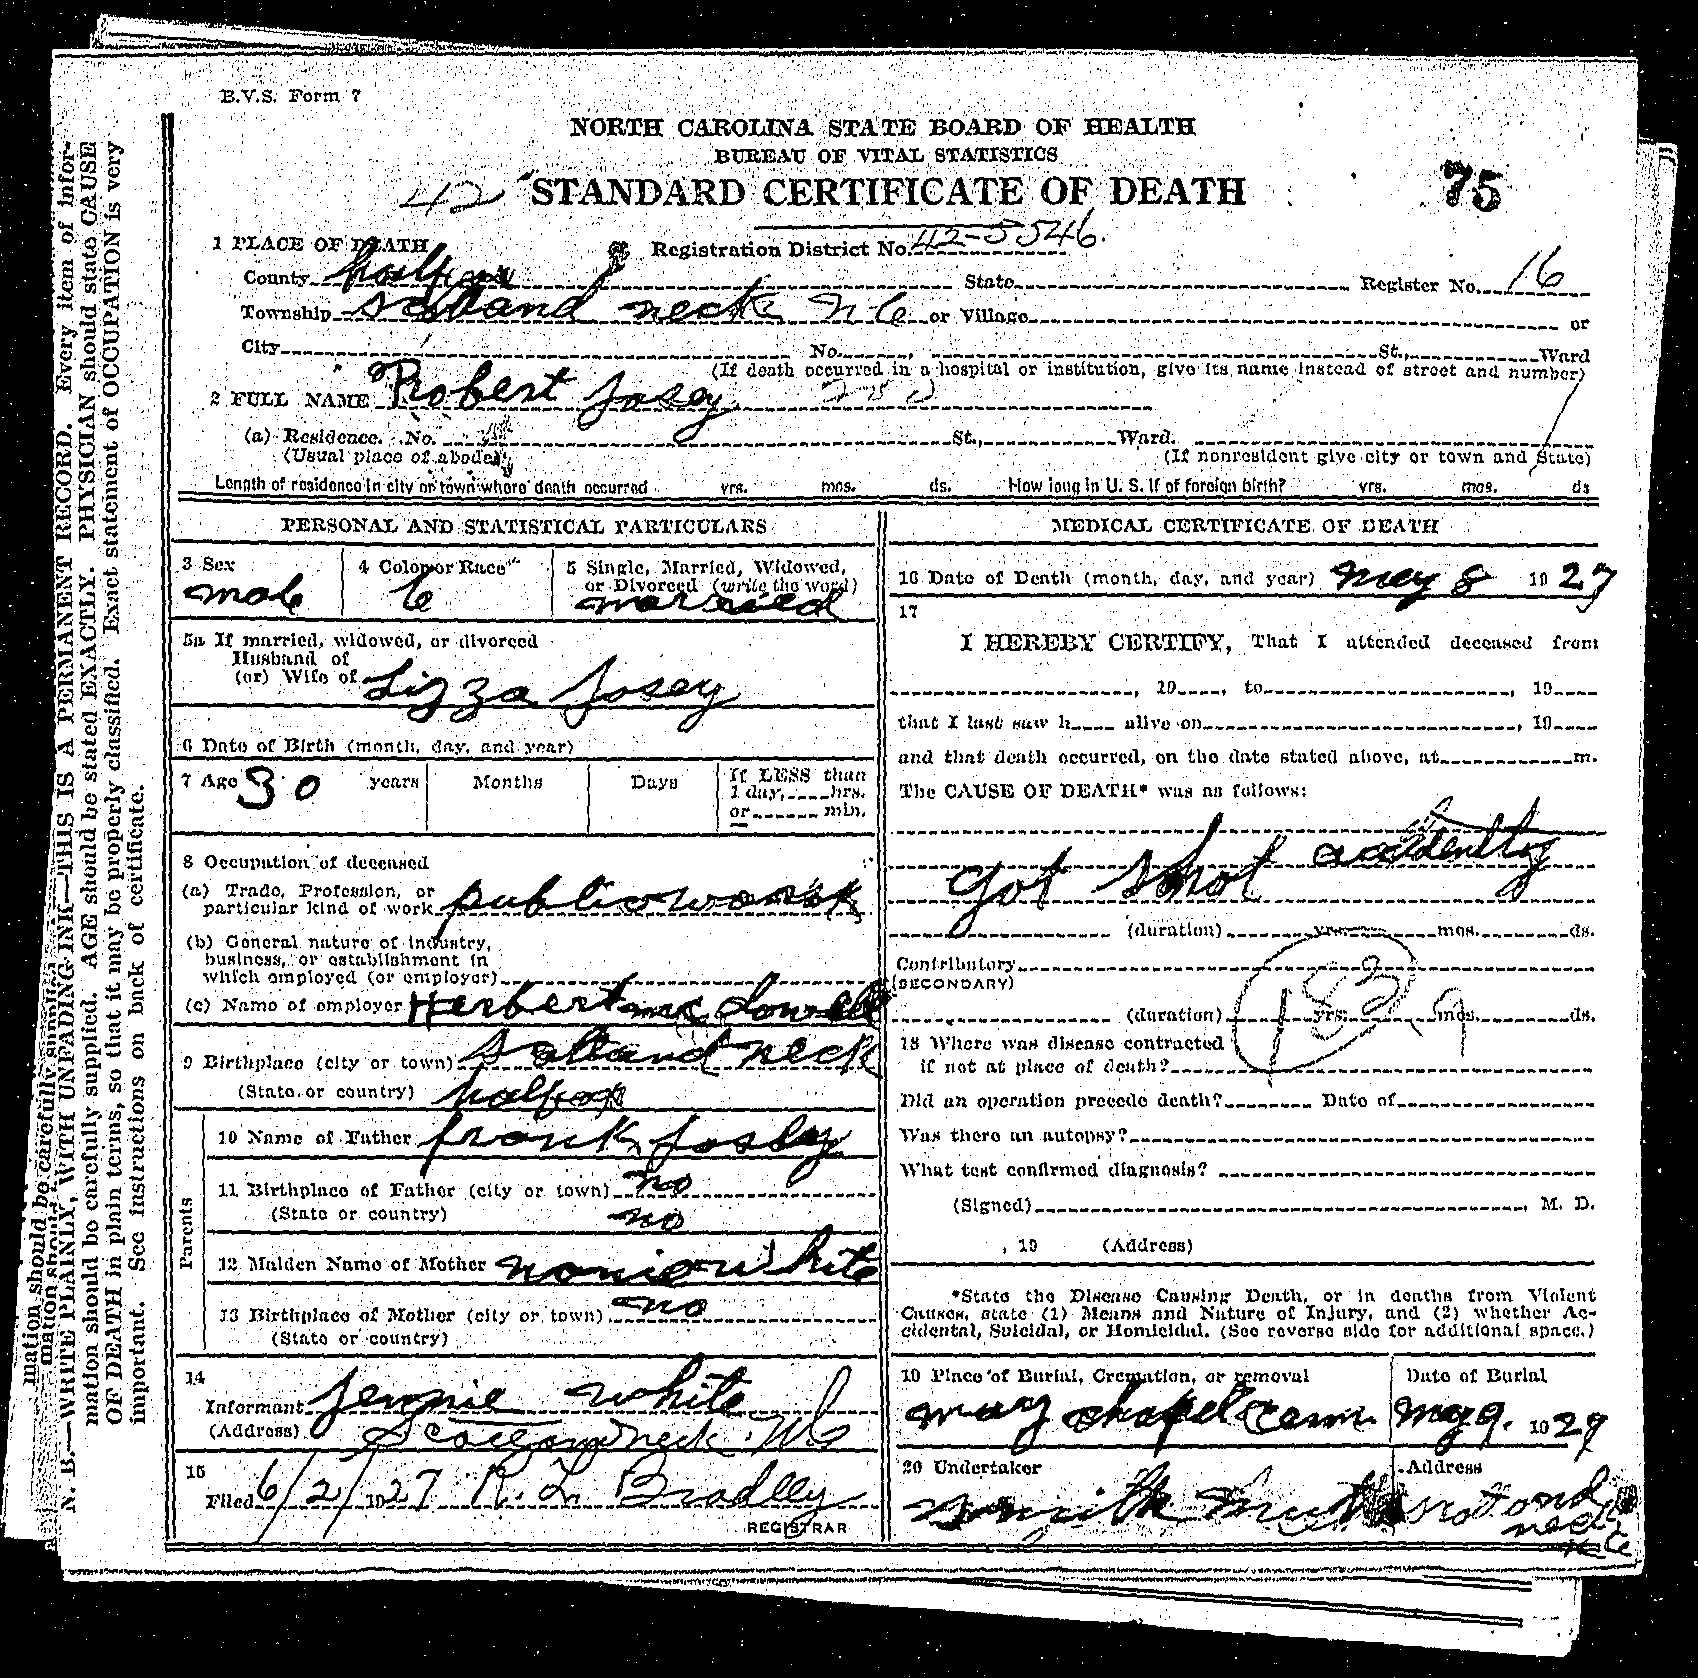 B.V.S. Form 7
NORTH CAROLINA STATE BOARD OF HEALTH
BUREAU OF VITAL STATISTICS
42 STANDARD CERTIFICATE OF DEATH 75
1 PLACE OF DEATH Registration District No. 42-5546.
County halfax State Register No. 16
Township Scotland neck N C or Village or
City No. , St., Ward
(If death occurred in a hospital or institution, give its name instead of street and number)
2 FULL NAME Robert Josey
(a) Residence. No. St., Ward.
(Usual place of abode) (If nonresident give city or town and State)
Length of residence in city or town where death occurred yrs. mos. ds. How long in U. S. if of foreign birth? yrs. mos. ds
PERSONAL AND STATISTICAL PARTICULARS
3 Sex 4 Color or Race 5 Single, Married, Widowed,
or Divorced (write the word)
male C married
5a If married, widowed, or divorced
Husband of
(or) Wife of Lizza Josey
6 Date of Birth (month, day, and year)
7 Age 30 years Months Days If LESS than
1 day, hrs.
or min.
8 Occupation of deceased
(a) Trade, Profession, or
particular kind of work public work
(b) General nature of industry,
business, or establishment in
which employed (or employer)
(c) Name of employer Herbert mc Dowell
9 Birthplace (city or town) Scotland neck
(State or country) halfax
Parents
10 Name of Father frank Josey
11 Birthplace of Father (city or town) no
(State or country) no
12 Maiden Name of Mother nonie White
13 Birthplace of Mother (city or town) no
(State or country)
14
Informant Jennie White
(Address) Scotland neck. N.C
15
Filed 6/2/1927 R. L. Bradley
REGISTRAR
MEDICAL CERTIFICATE OF DEATH
16 Date of Death (month, day, and year) May 8 1927
17
I HEREBY CERTIFY, That I attended deceased from
, 19 , to , 19
that I last saw h alive on , 19
and that death occurred, on the date stated above, at m.
The CAUSE OF DEATH* was as follows:
got shot accidently
(duration) yrs. mos. ds.
Contributory
(SECONDARY)
(duration) yrs. mos. ds.
183.9
18 Where was disease contracted
if not at place of death?
Did an operation precede death? Date of
Was there an autopsy?
What test confirmed diagnosis?
(Signed) , M. D.
, 19 (Address)
*State the Disease Causing Death, or in deaths from Violent
Causes, state (1) Means and Nature of Injury, and (2) whether Ac-
cidental, Suicidal, or Homicidal. (See reverse side for additional space.)
19 Place of Burial, Cremation, or removal Date of Burial
mary chapel cem. May 9. 1927
20 Undertaker Address
Smith neck
N C
N. B.—WRITE PLAINLY, WITH UNFADING INK—THIS IS A PERMANENT RECORD. Every item of infor-
mation should be carefully supplied. AGE should be stated EXACTLY. PHYSICIAN should state CAUSE
OF DEATH in plain terms, so that it may be properly classified. Exact statement of OCCUPATION is very
important. See instructions on back of certificate.
mation should be carefully supplied
mation should